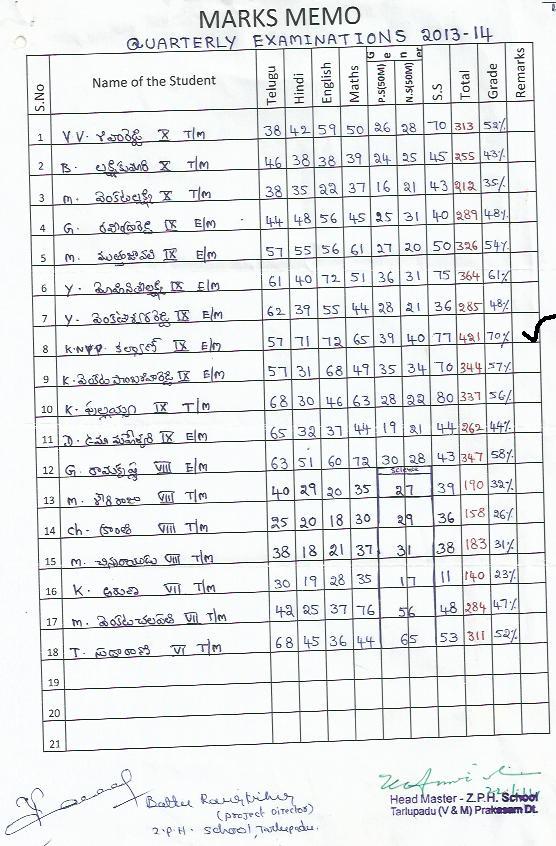 MARKS MEMO
QUARTERLY EXAMINATIONS 2013-14
S.No Name of the Student Telugu Hindi English Maths Gener P.S(50M) N.S(50M) S.S Total Grade Remarks
1 V V. X T/M 38 42 59 50 26 28 70 313 52%
2 B. లక్ష్మీకుమారి X T/M 46 38 38 39 24 25 45 255 43%
3 M. వెంకటలక్ష్మి X T/M 38 35 22 37 16 21 43 212 35%
4 G. IX E/M 44 48 56 45 25 31 40 289 48%
5 M. IX E/M 57 55 56 61 27 20 50 326 54%
6 Y. IX E/M 61 40 72 51 36 31 75 364 61%
7 Y. వెంకటేశ్వరరెడ్డి IX E/M 62 39 55 44 28 21 36 285 48%
8 కల్యాణ్ IX E/M 57 71 72 65 39 40 77 421 70%
9 K. IX E/M 57 31 68 49 35 34 70 344 57%
10 K. పుల్లయ్య IX T/M 68 30 46 63 28 22 80 337 56%
11 D. ఉమా మహేశ్వరి IX E/M 65 32 37 44 19 21 44 262 44%
12 G. రామకృష్ణ VIII E/M 63 51 60 72 30 28 43 347 58%
Science
13 M. VIII T/M 40 29 20 35 27 39 190 32%
14 Ch. VIII T/M 25 20 18 30 29 36 158 26%
15 M. VIII T/M 38 18 21 37 31 38 183 31%
16 K. VII T/M 30 19 28 35 17 11 140 23%
17 M. వెంకటచలపతి VII T/M 42 25 37 76 56 48 284 47%
18 T. VI T/M 68 45 36 44 65 53 311 52%
19
20
21
(Project Director)
Z.P.H. School, Tarlupadu.
Head Master - Z.P.H. School
Tarlupadu (V & M) Prakasam Dt.